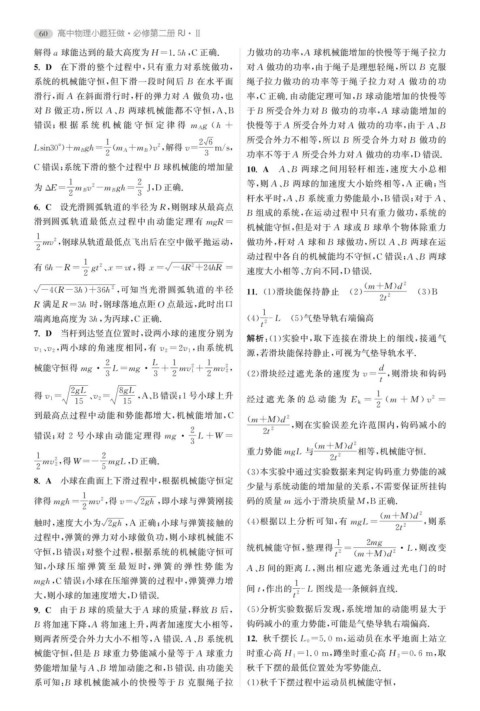 60 高中物理小题狂做·必修第二册 RJ·Ⅱ
解得 a 球能达到的最大高度为 H=1.5h,C 正确.
5. D 在下滑的整个过程中,只有重力对系统做功,
系统的机械能守恒,但下滑一段时间后 B 在水平面
滑行,而 A 在斜面滑行时,杆的弹力对 A 做负功,也
对 B 做正功,所以 A、B 两球机械能都不守恒,A、B
错误;根据系统机械能守恒得 m_A g(h+
Lsin30°)+m_B gh=1/2(m_A+m_B)v²,解得 v=2√6/3 m/s,
C 错误;系统下滑的整个过程中 B 球机械能的增加量
为 ΔE=1/2 m_B v²-m_B gh=2/3 J,D 正确.
6. C 设光滑圆弧轨道的半径为 R,则钢球从最高点
滑到圆弧轨道最低点过程中由动能定理有 mgR=
1/2 mv²,钢球从轨道最低点飞出后在空中做平抛运动,
有 6h-R=1/2 gt²、x=vt,得 x=√(-4R²+24hR)=
√(-4(R-3h)²+36h²),可知当光滑圆弧轨道的半径
R 满足 R=3h 时,钢球落地点距 O 点最远,此时出口
端离地高度为 3h,为丙球,C 正确.
7. D 当杆到达竖直位置时,设两小球的速度分别为
v₁、v₂,两小球的角速度相同,有 v₂=2v₁,由系统机
械能守恒得 mg·2/3 L=mg·L/3+1/2 mv₁²+1/2 mv₂²,
得 v₁=√(2gL/15)、v₂=√(8gL/15),A、B 错误;1 号小球上升
到最高点过程中动能和势能都增大,机械能增加,C
错误;对 2 号小球由动能定理得 mg·2/3 L+W=
1/2 mv₂²,得 W=-2/5 mgL,D 正确.
8. A 小球在曲面上下滑过程中,根据机械能守恒定
律得 mgh=1/2 mv²,得 v=√(2gh),即小球与弹簧刚接
触时,速度大小为√(2gh),A 正确;小球与弹簧接触的
过程中,弹簧的弹力对小球做负功,则小球机械能不
守恒,B 错误;对整个过程,根据系统的机械能守恒可
知,小球压缩弹簧至最短时,弹簧的弹性势能为
mgh,C 错误;小球在压缩弹簧的过程中,弹簧弹力增
大,则小球的加速度增大,D 错误.
9. C 由于 B 球的质量大于 A 球的质量,释放 B 后,
B 将加速下降,A 将加速上升,两者加速度大小相等,
则两者所受合外力大小不相等,A 错误.A、B 系统机
械能守恒,但是 B 球重力势能减小量等于 A 球重力
势能增加量与 A、B 增加动能之和,B 错误.由功能关
系可知;B 球机械能减小的快慢等于 B 克服绳子拉
力做功的功率,A 球机械能增加的快慢等于绳子拉力
对 A 做功的功率,由于绳子是理想轻绳,所以 B 克服
绳子拉力做功的功率等于绳子拉力对 A 做功的功
率,C 正确.由动能定理可知,B 球动能增加的快慢等
于 B 所受合外力对 B 做功的功率,A 球动能增加的
快慢等于 A 所受合外力对 A 做功的功率,由于 A、B
所受合外力不相等,所以 B 所受合外力对 B 做功的
功率不等于 A 所受合外力对 A 做功的功率,D 错误.
10. A A、B 两球之间用轻杆相连,速度大小总相
等,则 A、B 两球的加速度大小始终相等,A 正确;当
杆水平时,A、B 系统重力势能最小,B 错误;对于 A、
B 组成的系统,在运动过程中只有重力做功,系统的
机械能守恒,但是对于 A 球或 B 球单个物体除重力
做功外,杆对 A 球和 B 球做功,所以 A、B 两球在运
动过程中各自的机械能均不守恒,C 错误;A、B 两球
速度大小相等、方向不同,D 错误.
11. (1)滑块能保持静止 (2)(m+M)d²/2t² (3)B
(4)1/t²-L (5)气垫导轨右端偏高
解析:(1)实验中,取下连接在滑块上的细线,接通气
源,若滑块能保持静止,可视为气垫导轨水平.
(2)滑块经过遮光条的速度为 v=d/t,则滑块和钩码
经过遮光条的总动能为 E_k=1/2(m+M)v²=
(m+M)d²/2t²,则在实验误差允许范围内,钩码减小的
重力势能 mgL 与(m+M)d²/2t²相等,机械能守恒.
(3)本实验中通过实验数据来判定钩码重力势能的减
少量与系统动能的增加量的关系,不需要保证所挂钩
码的质量 m 远小于滑块质量 M,B 正确.
(4)根据以上分析可知,有 mgL=(m+M)d²/2t²,则系
统机械能守恒,整理得 1/t²=2mg/(m+M)d²·L,则改变
A、B 间的距离 L,测出相应遮光条通过光电门的时
间 t,作出的 1/t²-L 图线是一条倾斜直线.
(5)分析实验数据后发现,系统增加的动能明显大于
钩码减小的重力势能,可能是气垫导轨右端偏高.
12. 秋千摆长 L₀=5.0 m,运动员在水平地面上站立
时重心高 H₁=1.0 m,蹲坐时重心高 H₂=0.6 m,取
秋千下摆的最低位置处为零势能点.
(1)秋千下摆过程中运动员机械能守恒,